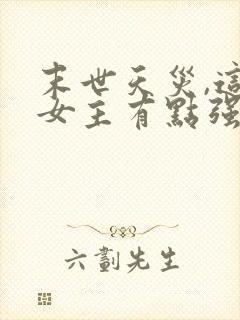 末世天災,這
女主有點强
六劃先生